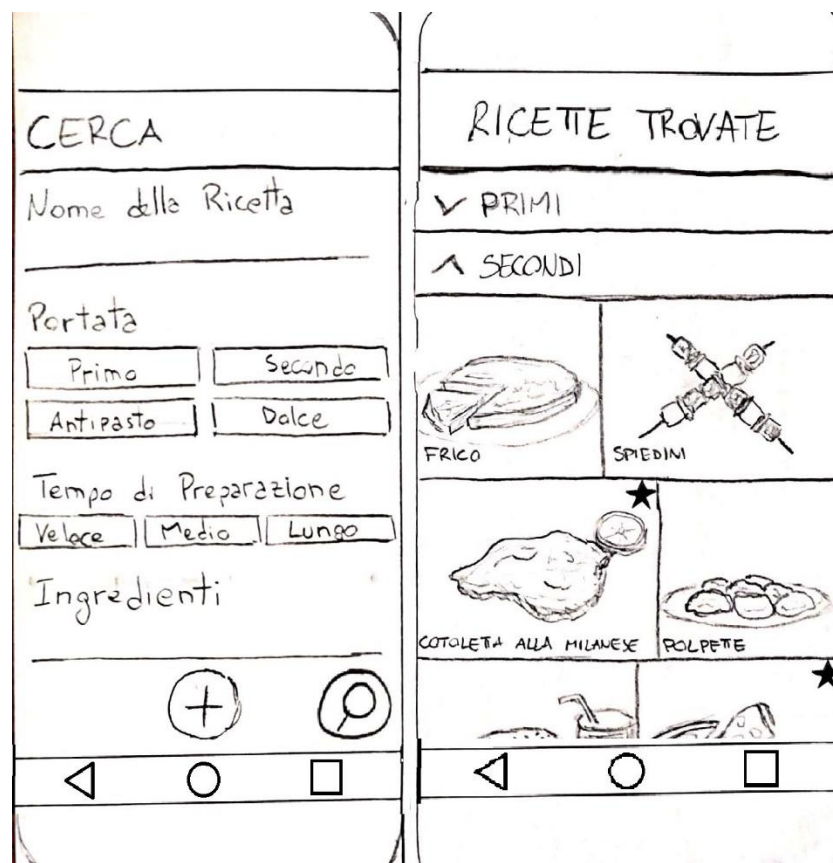 CERCA
Nome della Ricetta
Portata
Primo
Secondo
Antipasto
Dolce
Tempo di Preparazione
Veloce
Medio
Lungo
Ingredienti
RICETTE TROVATE
PRIMI
SECONDI
FRICO
SPIEDINI
COTOLETTA ALLA MILANESE
POLPETTE